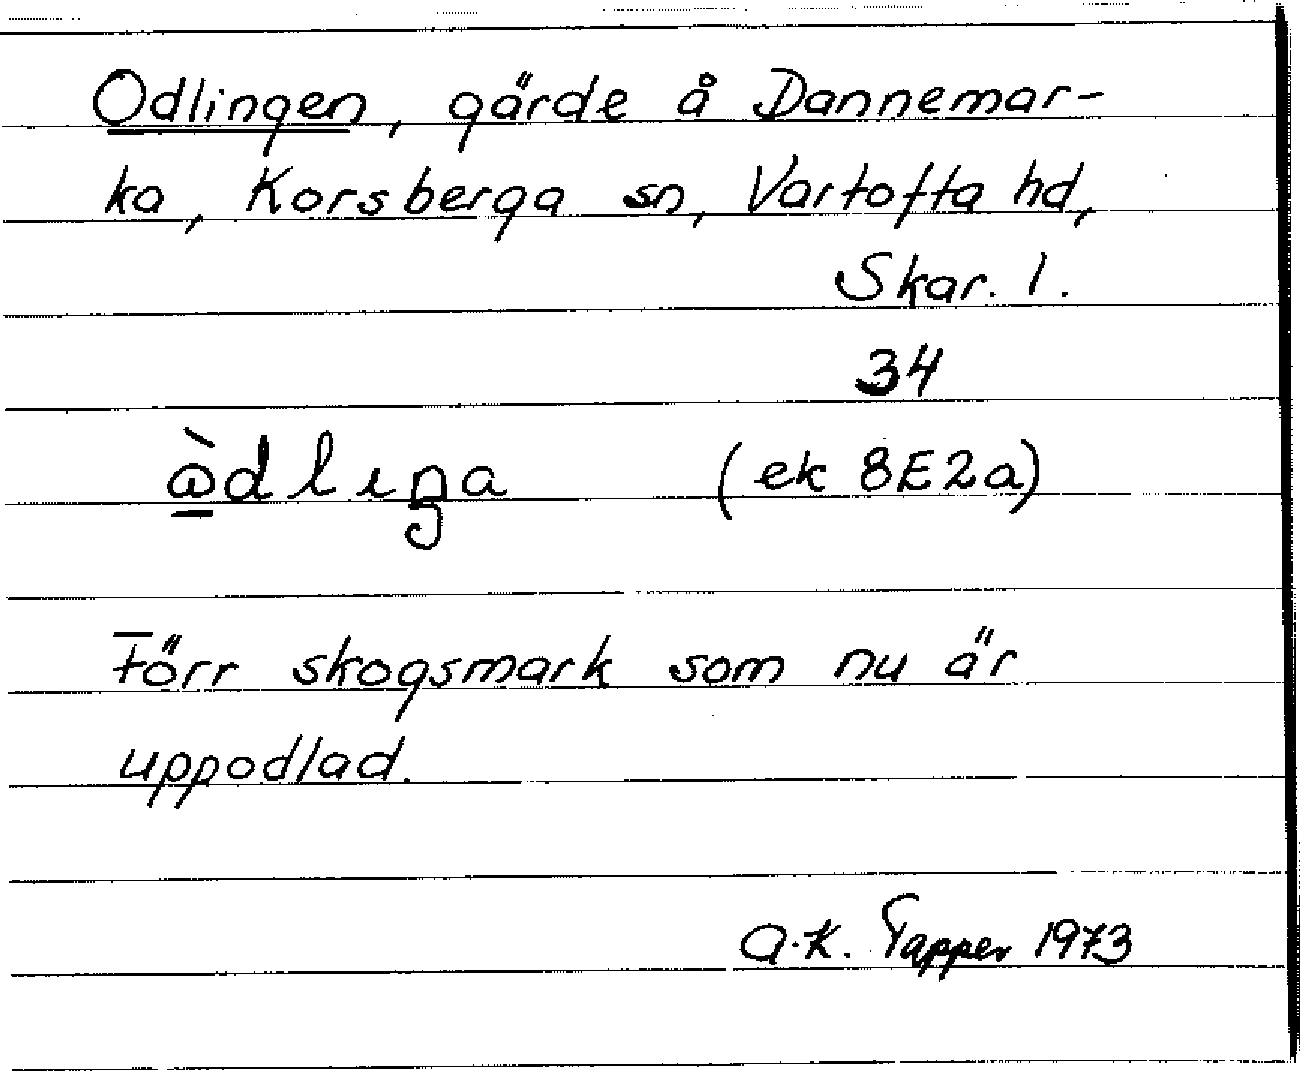 Odlingen, gärde å Dannemar-
ka, Korsberga sn, Vartofta hd,
Skar. l.
34
(ek 8E2a)
Förr skogsmark som nu är
uppodlad.
A.K. Tapper 1973